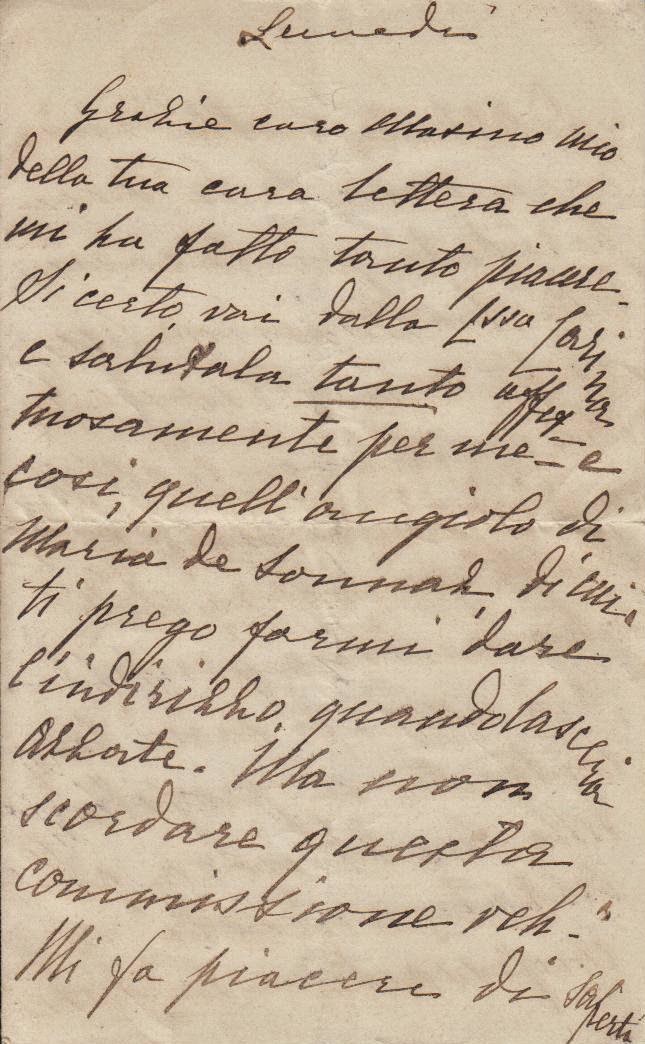 Lunedì
Grazie caro Masino mio
della tua cara lettera che
mi ha fatto tanto piacere.
Si certo, vai dalla C.ssa Carina
e salutala tanto affet-
tuosamente per me - e
così, quell'angiolo di
Maria de Sonnaz, di cui
ti prego farmi dare
l'indirizzo, quando lascerà
Ma non
scordare questa
commissione veh -
Mi fa piacere di saperti